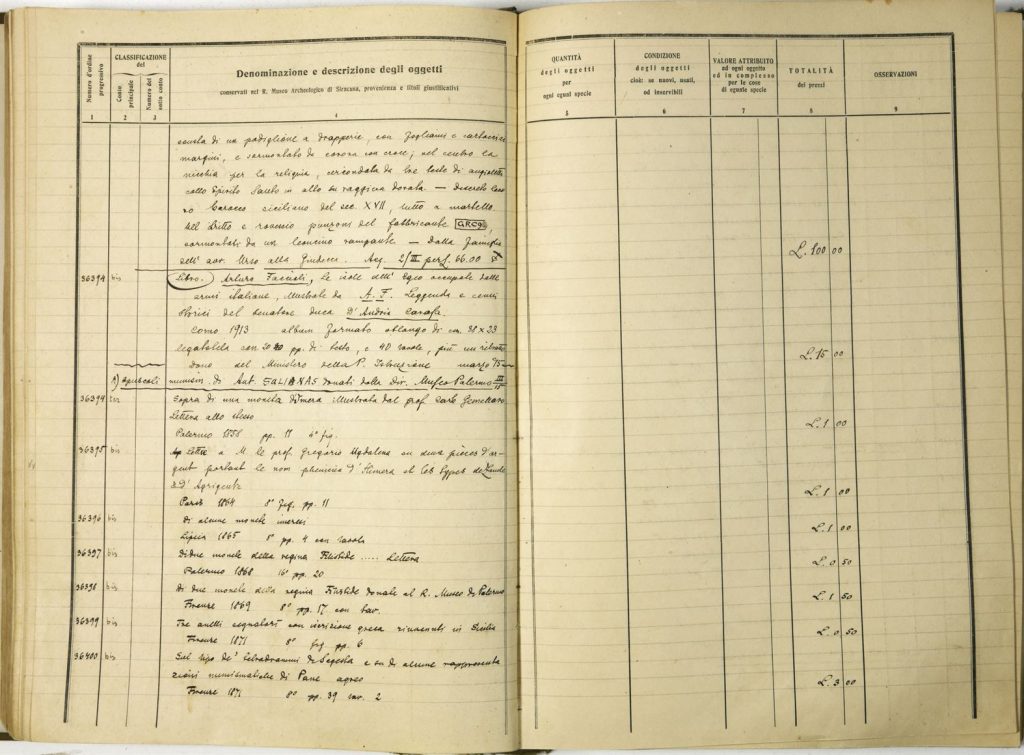 Numero d'ordine progressivo
CLASSIFICAZIONE del
Conto principale
Numero del sotto conto
Denominazione e descrizione degli oggetti
conservati nel R. Museo Archeologico di Siracusa, provenienza e titoli giustificativi
QUANTITÀ degli oggetti per ogni eguale specie
CONDIZIONE degli oggetti cioè: se nuovi, usati, od inservibili
VALORE ATTRIBUITO ad ogni oggetto ed in complesso per le cose di eguale specie
TOTALITÀ dei prezzi
OSSERVAZIONI
1 2 3 4 5 6 7 8 9
consta di un padiglione a drapperie, con fogliami e cartocci ai
margini, e sormontato da corona con croce; nel centro la
nicchia per la reliquia, circondata da tre teste di angioletti
collo Spirito Santo in alto su raggiera dorata. — Discreto lavo
ro barocco siciliano del sec. XVII, tutto a martello
Nel dritto e rovescio punzoni del fabbricante GRC92,
sormontati da un leoncino rampante. — Dalla famiglia
dell' avv. Urso alla Giudecca. Acq. 2/III per L. 66.00 L. 100 00
36394 bis (Libro.) Arturo Faccioli, le isole dell' Egeo occupate dalle
armi italiane, illustrate da A. F. Leggenda e cenni
storici del senatore duca D'Andria Carafa.
Como 1913 album formato oblungo di cm. 38 x 23
legato tela con pp. di testo, e 40 tavole, più un ritratto
dono del Ministero della P. Istruzione marzo 15 L. 15 00
A) Opuscoli numism. di Ant. SALINAS donati dalla Dir. Museo Palermo III/15
36394 ter Sopra di una moneta d'Imera illustrata dal prof. Carlo Gemellaro
Lettera allo stesso
Palermo 1858 pp. 11 4° fig. L. 1 00
36395 bis Lettre à M. le prof. Gregorio Ugdulena su deux pièces d'ar
gent portant le nom phenicien d'Himera et les types de Zancle
& d'Agrigente
Paris 1864 8° fig. pp. 11 L. 1 00
36396 bis Di alcune monete ineresi
Lipsia 1865 8° pp. 4 con tavola L. 1 00
36397 bis Di due monete della regina Filistide ..... Lettera
Palermo 1868 16° pp. 20 L. 0 50
36398 bis Di due monete della regina Filistide donate al R. Museo di Palermo
Firenze 1869 8° pp. 17 con tav. L. 1 50
36399 bis Tre anelli segnatori con iscrizione greca rinvenuti in Sicilia
Firenze 1871 8° fig. pp. 6 L. 0 50
36400 bis Sul tipo de' tetradrammi di Segesta e su di alcune rappresenta
zioni numismatiche di Pane agreo
Firenze 1871 8° pp. 39 tav. 2 L. 3 00